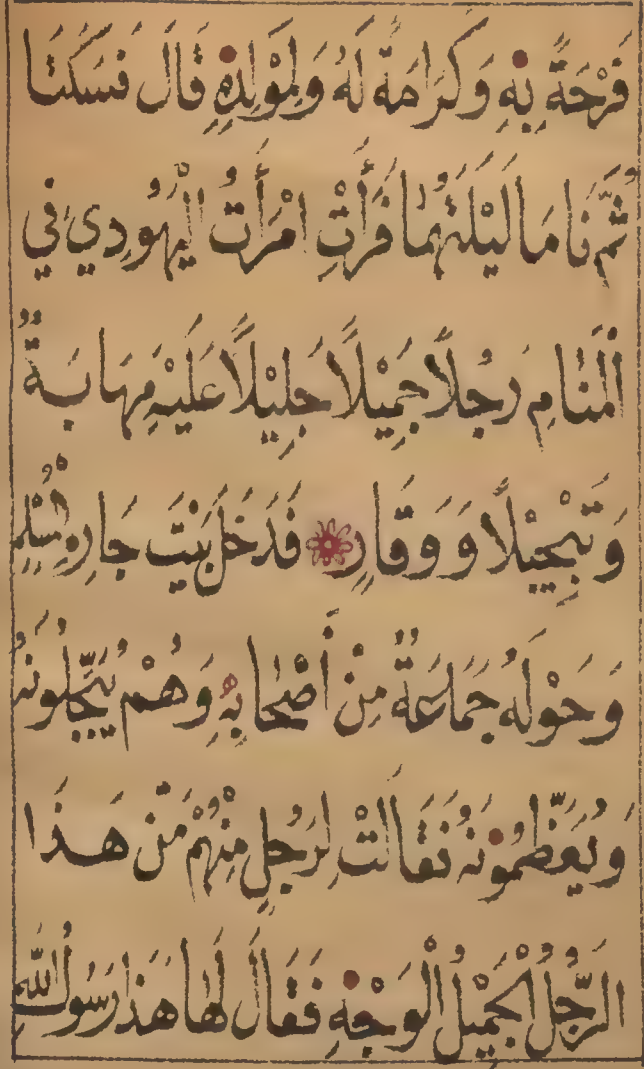 فَرْحَةً بِهِ وَكَرَامَةً لَهُ وَلِمَوْلِدِهِ قَالَ فَسَكَتَا
ثُمَّ نَامَا لَيْلَتَهُمَا فَرَأَتْ امْرَأَتُ الْيَهُودِي فِي
الْمَنَامِ رَجُلاً جَمِيْلاً جَلِيْلاً عَلَيْهِ مَهَابَةٌ
وَتَبْجِيْلاً وَوَقَارٍ فَدَخَلَ بَيْتَ جَارِهِ الْمُسْلِمِ
وَحَوْلَهُ جَمَاعَةٌ مِنْ أَصْحَابِهِ وَهُمْ يُبَجِّلُونَهُ
وَيُعَظِّمُونَهُ فَقَالَتْ لِرَجُلٍ مِنْهُمْ مَنْ هَذَا
الرَّجُلُ الْجَمِيْلُ الْوَجْهِ فَقَالَ لَهَا هَذَا رَسُولُ اللَّهِ